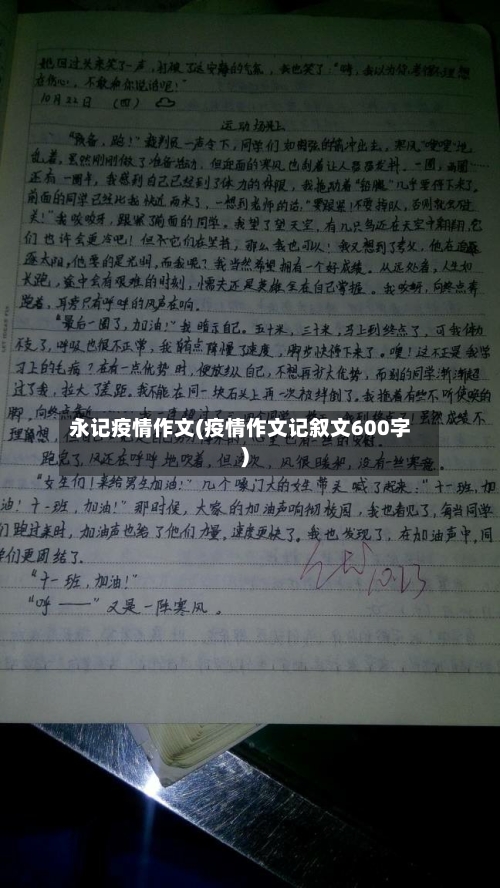 她回过头来笑了一声,打破了这安静的气氛,我也笑了:"嗨,我以为你考得不理想
在伤心,不敢和你说话呢!"
10月22日 (四)
运动场上
"预备,跑!"裁判员一声令下,同学们如离弦的箭冲出去。寒风"嗖嗖"地
刮着,虽然刚刚做了准备活动,但迎面的寒风也刮着让人瑟瑟发抖。一圈,两圈
还有一圈半,我感到自己已经到了体力的极限,我拖动着
前面的同学已经比我快近两米了,一想到老师的话,"要跟紧!不要掉队,否则就
我咬咬牙,跟紧了前面的同学。我望了望天空,有几只鸟还在天空中翱翔,它
们也许会更冷吧!但它们在坚持,那么我也可以!我又想到了夸父,他在追
逐太阳,他要的是光明,而我呢?我当然希望拥有一个好成绩。从远处看,人生如
长跑,途中会有艰难的时刻,懦夫还是英雄全在自己掌握。我咬牙,向终点奔
跑着,耳旁只有呼呼的风声在响。
"最后一圈了,加油!"我暗示自己。五十米,三十米,马上到终点了,可我体力
不支了,呼吸也很不正常,我稍稍降慢了速度,脚步快停下来了。嗖!这不正是我学
习上的毛病?在有一点优势时,便放纵自己,不想再扩大优势,而别的同学渐渐超
过了我,拉大了差距。我不能在同一块石头上再一次被绊倒了。我拖着有些不听使唤的
脚,向终点
虽然成绩不
理想,但
永记疫情作文(疫情作文记叙文600字
)
跑完了,风还在呼呼地吹着,但这次,风很暖和,没有一丝寒意。
"女生们!来给男生加油!"几个嗓门大的女生带头喊了起来:"十一班,加
油!十一班,加油!"那时候,大家的加油声响彻校园,我也看见了,每当同学
们跑过来时,加油声也给了他们力量,速度更快了。我也发现了,在加油声中,同
学们更团结了.
"十一班,加油!"
"呼——"又是一阵寒风。
10.23